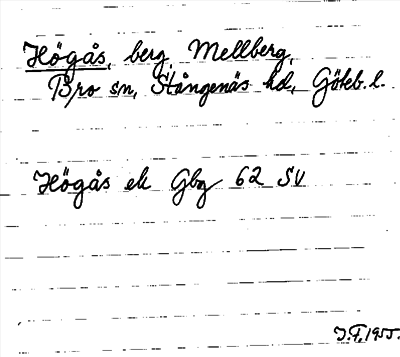 Högås, berg, Mellberg,
Bro sn, Stångenäs hd, Göteb. l.
Högås ek Gbg 62 SV
J.T. 1955.